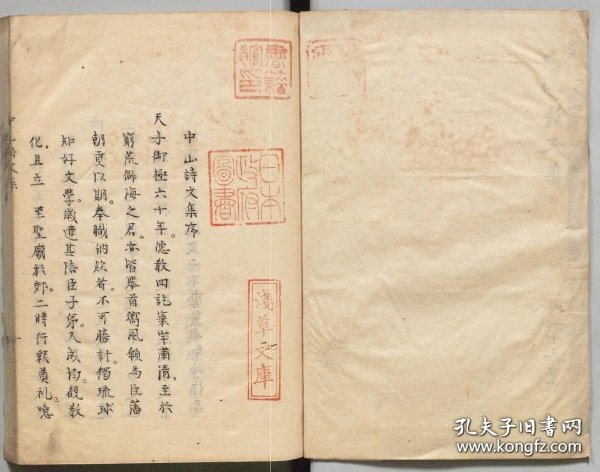 中山詩文集序
天子御極六十年。德教四訖寰宇肅清。至於
窮荒僻海之君。亦皆舉首嚮風願為臣藩
朝更以期。奉職納欵者。不可勝計。獨琉球
知好文學。歲遣其陪臣子弟。入成均。觀教
化。且立 至聖廟於郊。二時行釋奠礼。噫
書籍館印
日本政府圖書
淺草文庫
孔夫子旧书网
www.kongfz.com